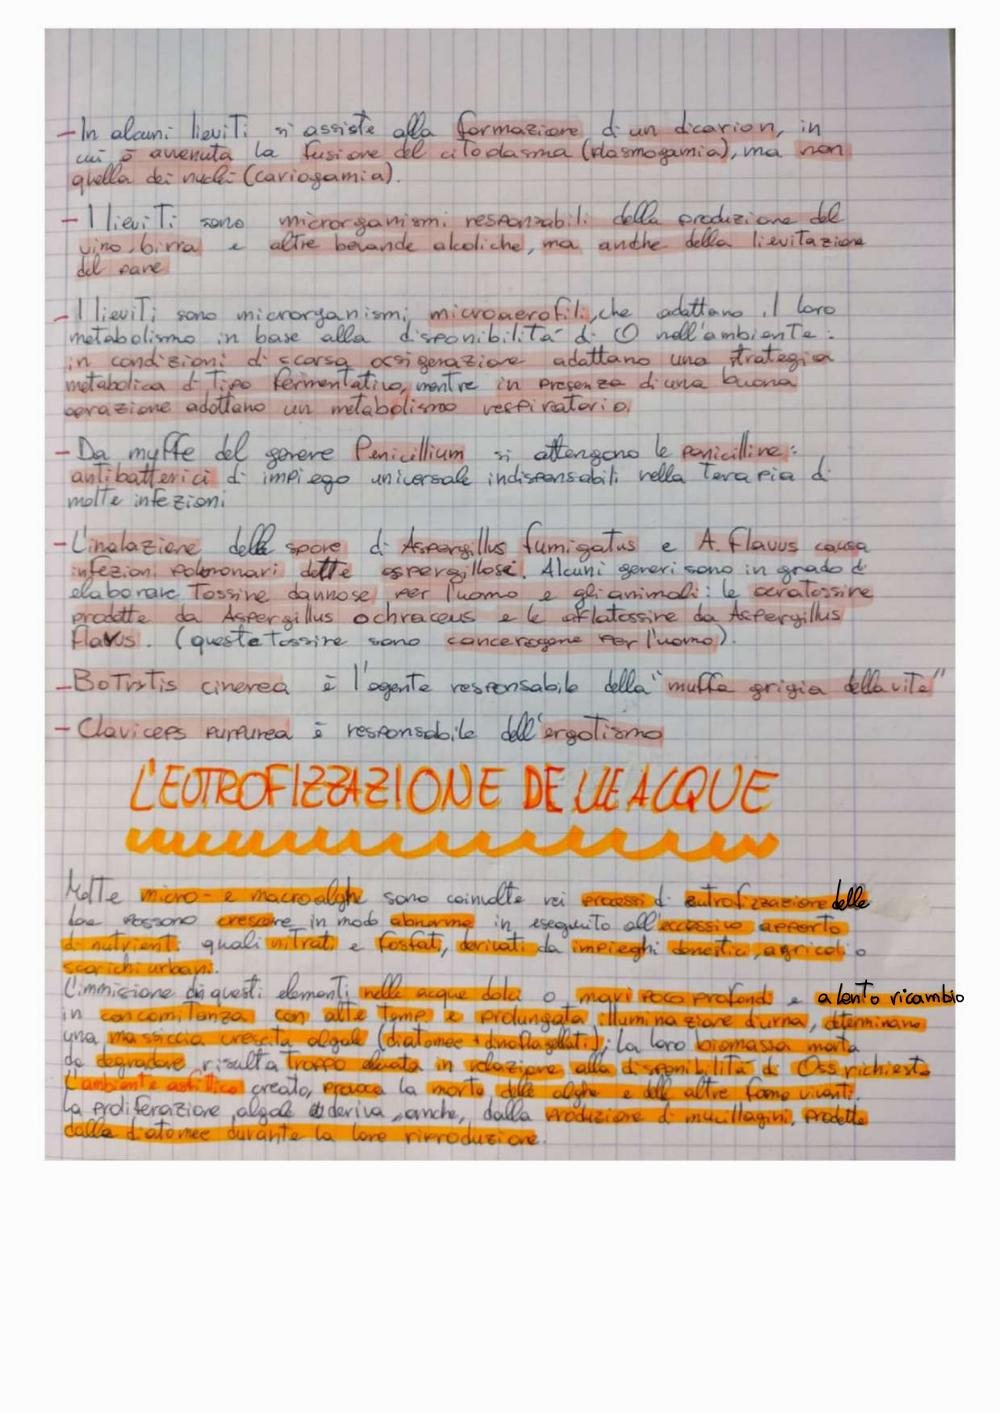 - In alcuni lieviti si assiste alla formazione di un dicarion, in
cui è avvenuta la fusione del citoplasma (plasmogamia), ma non
quella dei nuclei (cariogamia).
- I lieviti sono microrganismi responsabili della produzione del
vino, birra e altre bevande alcoliche, ma anche della lievitazione
del pane
- I lieviti sono microrganismi microaerofili, che adattano il loro
metabolismo in base alla disponibilità di O nell'ambiente:
in condizioni di scarsa ossigenazione adattano una strategia
metabolica di tipo fermentativo, mentre in presenza di una buona
aerazione adottano un metabolismo respiratorio.
- Da muffe del genere Penicillium si ottengono le penicilline:
antibatterici di impiego universale indispensabili nella terapia di
molte infezioni
- L'inalazione delle spore di Aspergillus fumigatus e A. Flavus causa
infezioni polmonari dette aspergillosi. Alcuni generi sono in grado di
elaborare tossine dannose per l'uomo e gli animali: le ocratossine
prodotte da Aspergillus ochraceus e le aflatossine da Aspergillus
Flavus. (queste tossine sono cancerogene per l'uomo).
- Botrytis cinerea è l'agente responsabile della "muffa grigia della vite"
- Claviceps purpurea è responsabile dell'ergotismo
L'EUTROFIZZAZIONE DELLE ACQUE
Molte micro- e macroalghe sono coinvolte nei processi di eutrofizzazione delle
possono crescere in modo abnorme in eseguito all'eccessivo apporto
di nutrienti quali nitrati e fosfati, derivati da impieghi domestici, agricoli o
scarichi urbani.
L'immissione di questi elementi nelle acque dolci o mari poco profondi e a lento ricambio
in concomitanza con alte temp e prolungata illuminazione diurna, determinano
una massiccia crescita algale (diatomee + dinoflagellati); La loro biomassa morta
da degradare, risulta troppo elevata in relazione alla disponibilità di Oss richiesta
L'ambiente asfittico creato, provoca la morte delle alghe e delle altre forme viventi.
La proliferazione algale deriva, anche, dalla produzione di mucillagini, prodotte
dalla diatomee durante la loro riproduzione.